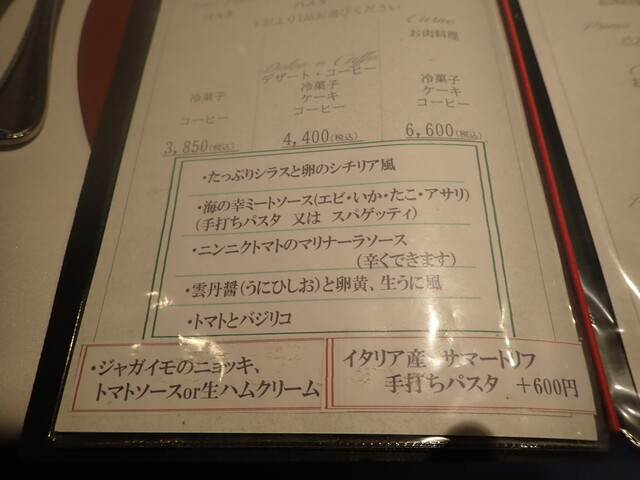 パスタ
パスタ
下記より1品お選びください
Carne
お肉料理
Dolce e Caffe
デザート・コーヒー
冷菓子
コーヒー
冷菓子
ケーキ
コーヒー
冷菓子
ケーキ
コーヒー
3,850(税込)
4,400(税込)
6,600(税込)
・たっぷりシラスと卵のシチリア風
・海の幸ミートソース(エビ・いか・たこ・アサリ)
(手打ちパスタ 又は スパゲッティ)
・ニンニクトマトのマリナーラソース
(辛くできます)
・雲丹醤(うにひしお)と卵黄、生うに風
・トマトとバジリコ
・ジャガイモのニョッキ、
トマトソースor生ハムクリーム
イタリア産 サマートリフ
手打ちパスタ +600円